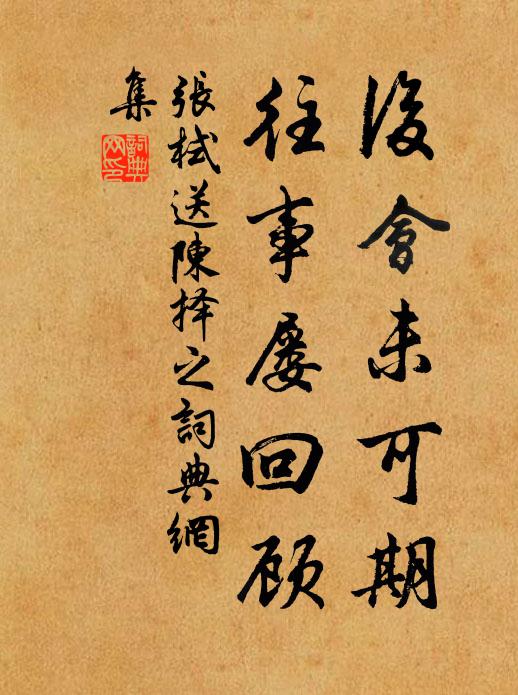 後會未可期
往事屡回顾
張栻送陳择之詞典網
集
詞典网印